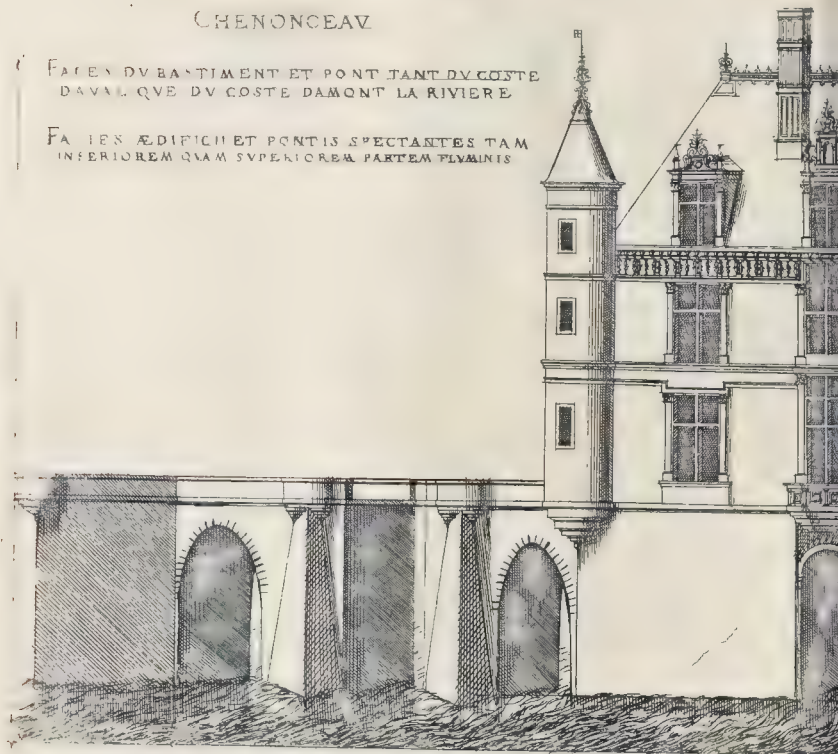 CHENONCEAV
FACES DV BASTIMENT ET PONT TANT DV COSTE
DAVAL QVE DV COSTE DAMONT LA RIVIERE
FACIES ÆDIFICII ET PONTIS SPECTANTES TAM
INFERIOREM QVAM SVPERIOREM PARTEM FLVMINIS